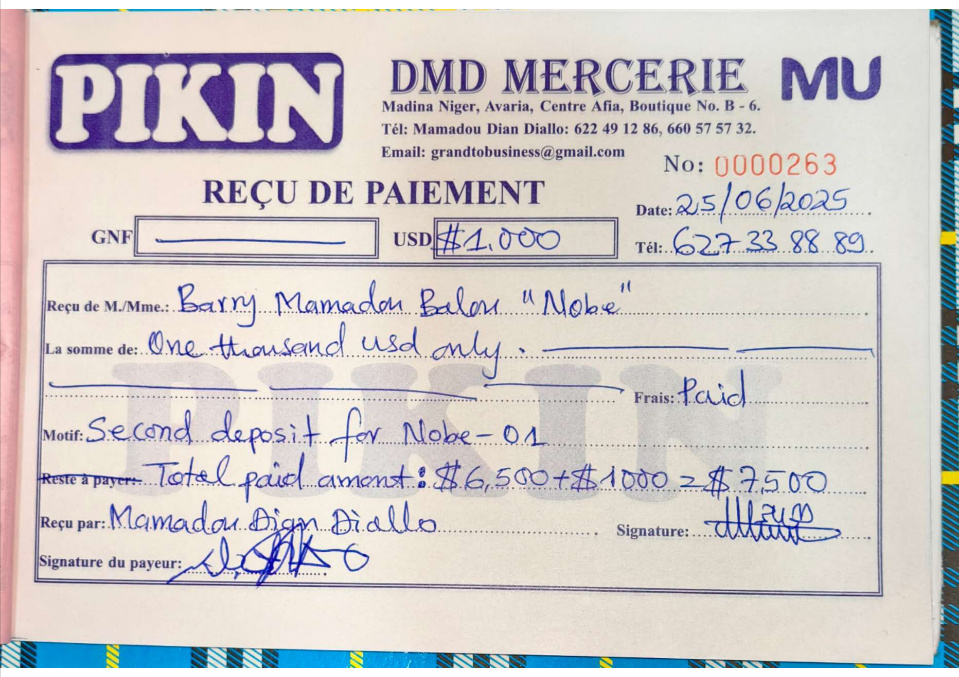 PIKIN
DMD MERCERIE
MU
Madina Niger, Avaria, Centre Afia, Boutique No. B - 6.
Tél: Mamadou Dian Diallo: 622 49 12 86, 660 57 57 32.
Email: grandtobusiness@gmail.com
No: 0000263
REÇU DE PAIEMENT
Date: 25/06/2025
GNF
USD $1.000
Tél: 627 33 88 89
Reçu de M./Mme.: Barry Mamadou Balou "Nobe"
La somme de: One thousand usd only.
Frais: Paid
PIKIN
Motif: Second deposit for Nobe-01
Reste à payer: Total paid amonst: $6,500+$1000=$7500
Reçu par: Mamadou Dian Diallo
Signature:
Signature du payeur: